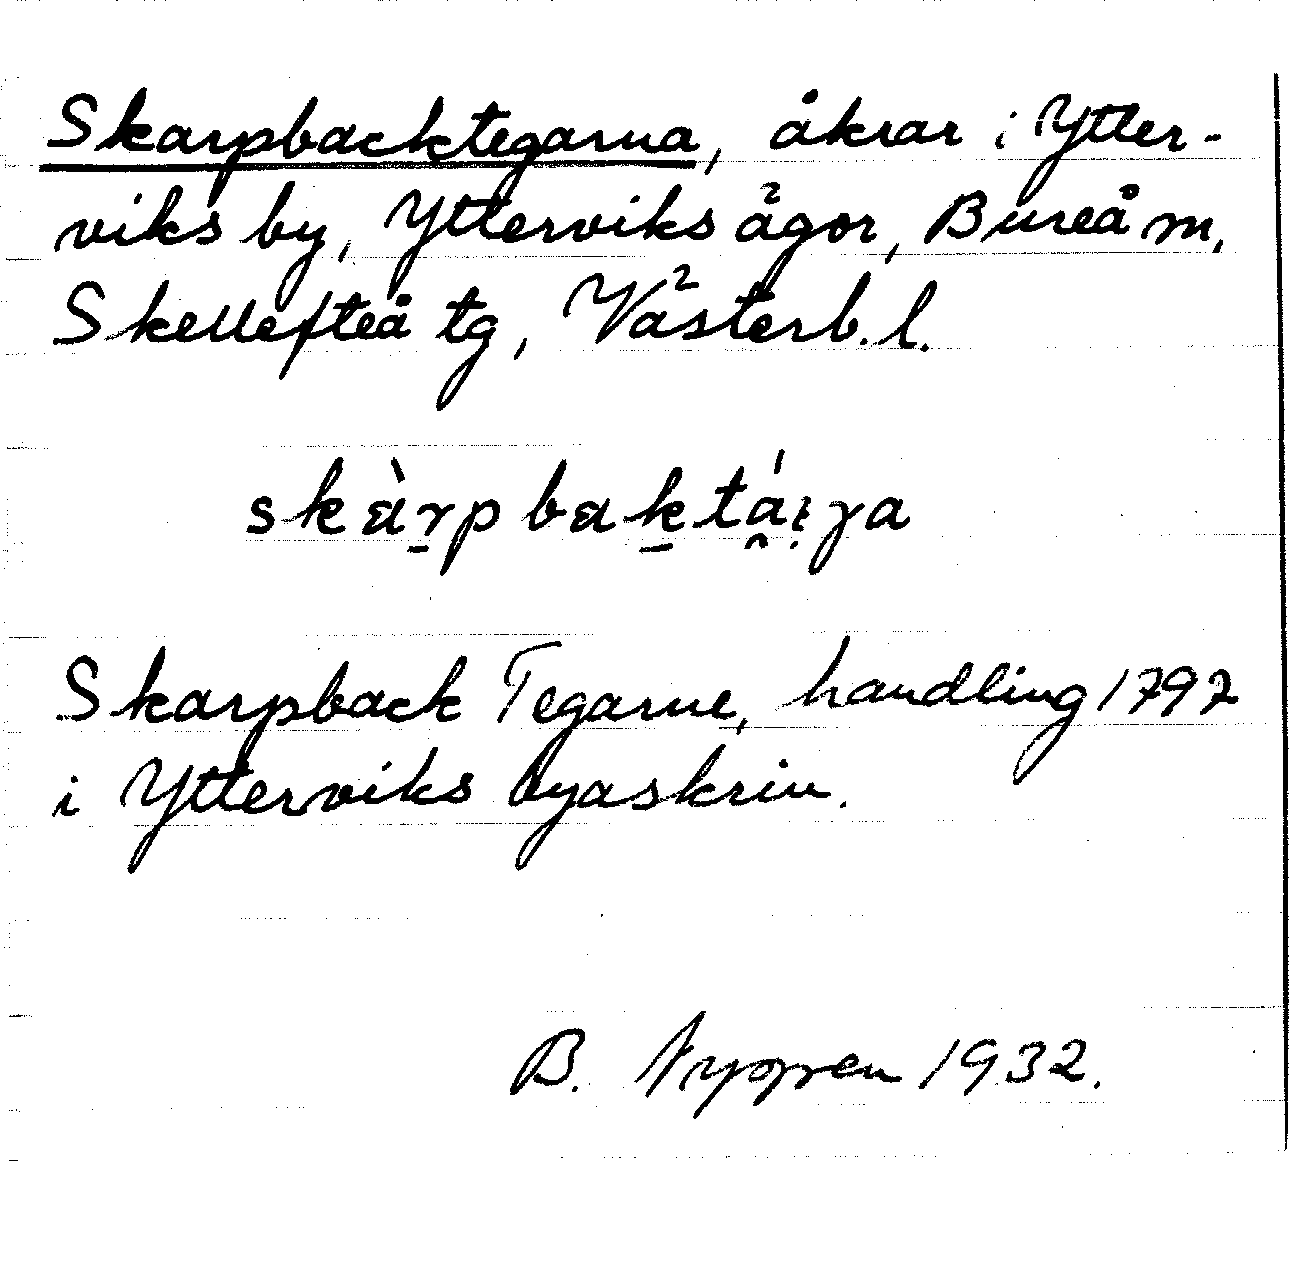 Skarpbacktegarna, åkrar i Ytter-
viks by, Ytterviks ägor, Bureå m,
Skellefteå tg, Västerb. l.
Skarpback Tegarne, handling 1797
i Ytterviks byaskrin.
B. Nygren 1932.